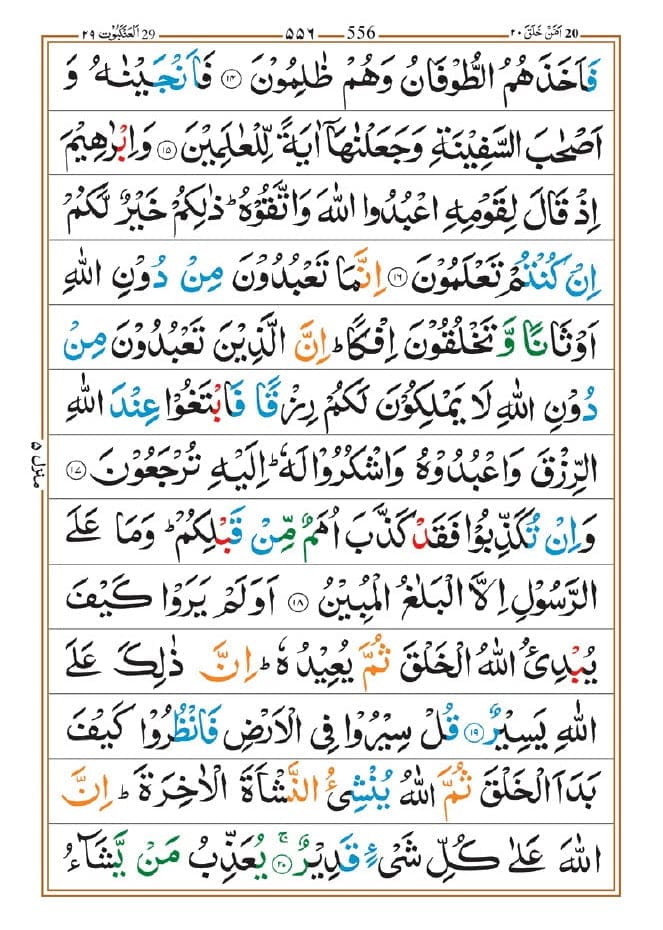 اَمَّنْ خَلَقَ ۲۰ 20
556 ۵۵۶
اَلْعَنْكَبُوْت ۲۹ 29
فَاَخَذَهُمُ الطُّوْفَانُ وَهُمْ ظٰلِمُوْنَ ۝۱۴ فَاَنْجَيْنٰهُ وَ
اَصْحٰبَ السَّفِيْنَةِ وَجَعَلْنٰهَاۤ اٰيَةً لِّلْعٰلَمِيْنَ ۝۱۵ وَاِبْرٰهِيْمَ
اِذْ قَالَ لِقَوْمِهِ اعْبُدُوا اللّٰهَ وَاتَّقُوْهُ ؕ ذٰلِكُمْ خَيْرٌ لَّكُمْ
اِنْ كُنْتُمْ تَعْلَمُوْنَ ۝۱۶ اِنَّمَا تَعْبُدُوْنَ مِنْ دُوْنِ اللّٰهِ
اَوْثَانًا وَّ تَخْلُقُوْنَ اِفْكًا ؕ اِنَّ الَّذِيْنَ تَعْبُدُوْنَ مِنْ
دُوْنِ اللّٰهِ لَا يَمْلِكُوْنَ لَكُمْ رِزْقًا فَابْتَغُوْا عِنْدَ اللّٰهِ
الرِّزْقَ وَاعْبُدُوْهُ وَاشْكُرُوْا لَهٗ ؕ اِلَيْهِ تُرْجَعُوْنَ ۝۱۷
وَاِنْ تُكَذِّبُوْا فَقَدْ كَذَّبَ اُمَمٌ مِّنْ قَبْلِكُمْ ؕ وَمَا عَلَى
الرَّسُوْلِ اِلَّا الْبَلٰغُ الْمُبِيْنُ ۝۱۸ اَوَلَمْ يَرَوْا كَيْفَ
يُبْدِئُ اللّٰهُ الْخَلْقَ ثُمَّ يُعِيْدُهٗ ؕ اِنَّ ذٰلِكَ عَلَى
اللّٰهِ يَسِيْرٌ ۝۱۹ قُلْ سِيْرُوْا فِى الْاَرْضِ فَانْظُرُوْا كَيْفَ
بَدَاَ الْخَلْقَ ثُمَّ اللّٰهُ يُنْشِئُ النَّشْاَةَ الْاٰخِرَةَ ؕ اِنَّ
اللّٰهَ عَلٰى كُلِّ شَىْءٍ قَدِيْرٌ ۝۲۰ۚ يُعَذِّبُ مَنْ يَّشَآءُ
منزل ۵